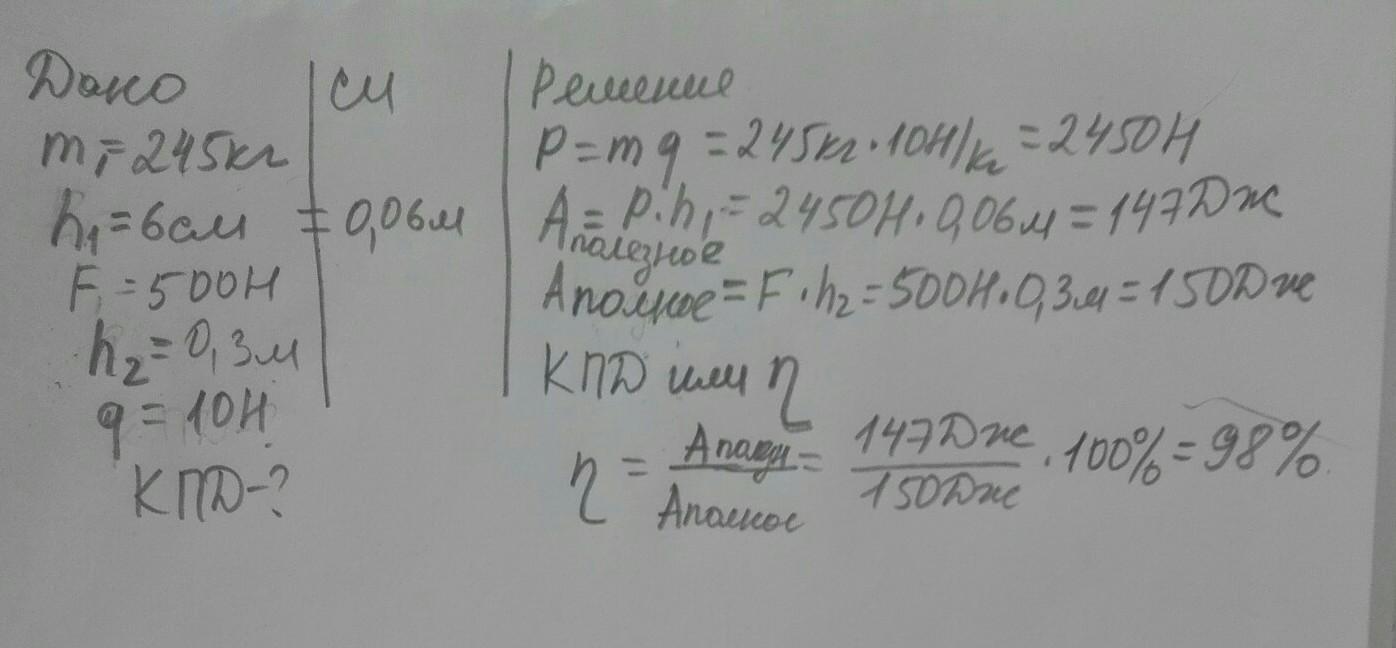 Дано
m₁=245кг
h₁=6см
F₁=500Н
h₂=0,3м
g=10Н
КПД-?
СИ
=0,06м
Решение
P=mg=245кг·10Н/кг=2450Н
A=P·h₁=2450Н·0,06м=147Дж
полезное
Aполное=F·h₂=500Н·0,3м=150Дж
КПД или η
η=Aполезн/Aполное=147Дж/150Дж·100%=98%